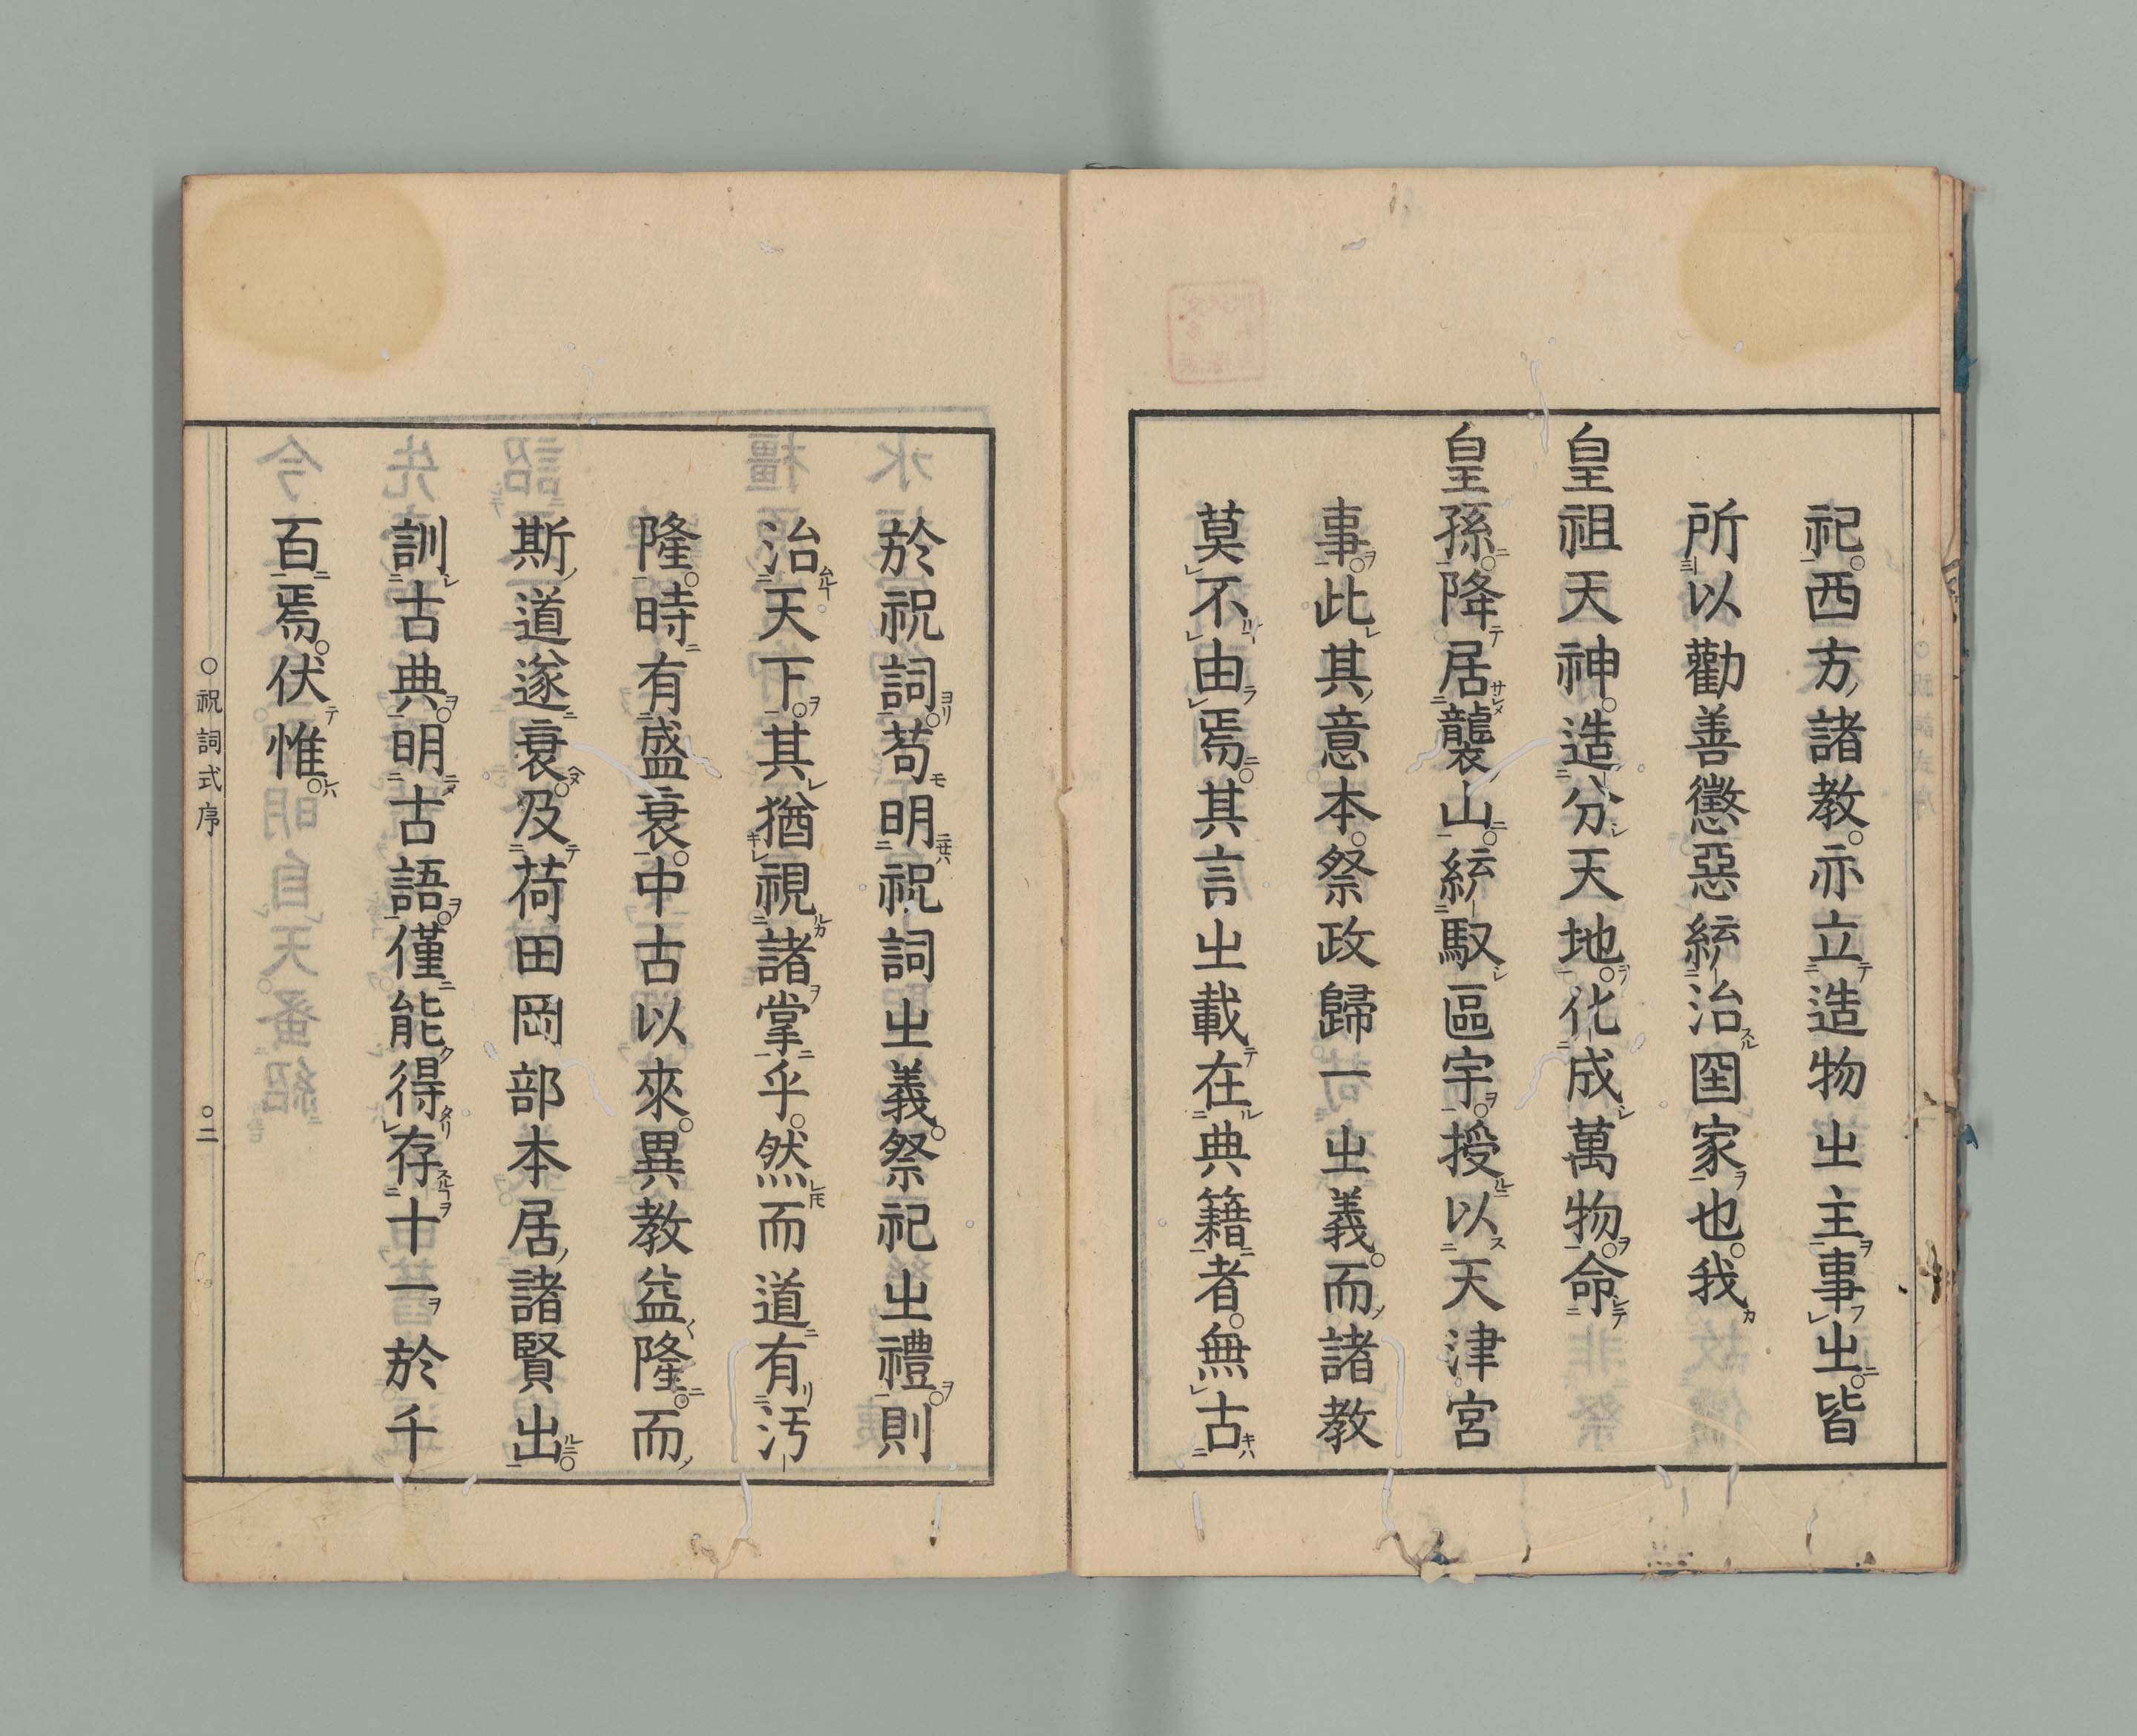 祀。西方諸教。亦立造物㞢主事㞢。皆
所以勸善懲惡統治国家也。我
皇祖天神。造分天地。化成萬物。命
皇孫。降居襲山。統馭區宇。授以天津宮
事。此其意本。祭政歸一㞢義。而諸教
莫不由焉。其言㞢載在典籍者。無古
於祝詞。苟明祝詞㞢義。祭祀㞢禮。則
治天下。其猶視諸掌乎。然而道有汚
隆。時有盛衰。中古以來。異教益隆。而
斯道遂衰。及荷田岡部本居諸賢出。
訓古典。明古語。僅能得存十一於千
百焉。伏惟。
○祝詞式序
○二